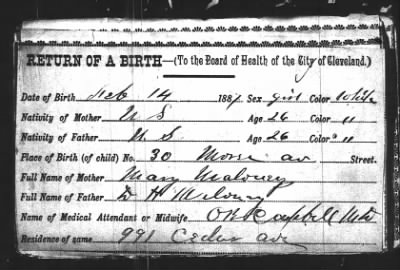 RETURN OF A BIRTH—(To the Board of Health of the City of Cleveland.)
Date of Birth Feb 14 1887 Sex girl Color White
Nativity of Mother U S Age 26 Color "
Nativity of Father U. S. Age 26 Color "
Place of Birth (of child) No. 30 Morse av Street.
Full Name of Mother Mary Maloney
Full Name of Father D H
Name of Medical Attendant or Midwife O B Campbell MD
Residence of same 991 Cedar Ave